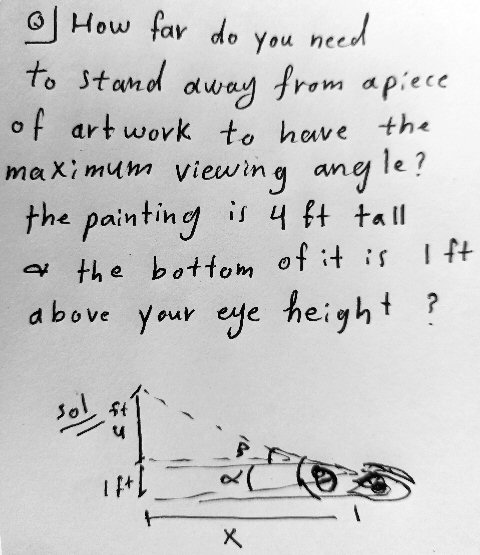 Q] How far do you need
to stand away from a piece
of artwork to have the
maximum viewing angle?
the painting is 4 ft tall
& the bottom of it is 1 ft
above your eye height ?
sol
ft
4
β
α
1 ft
x